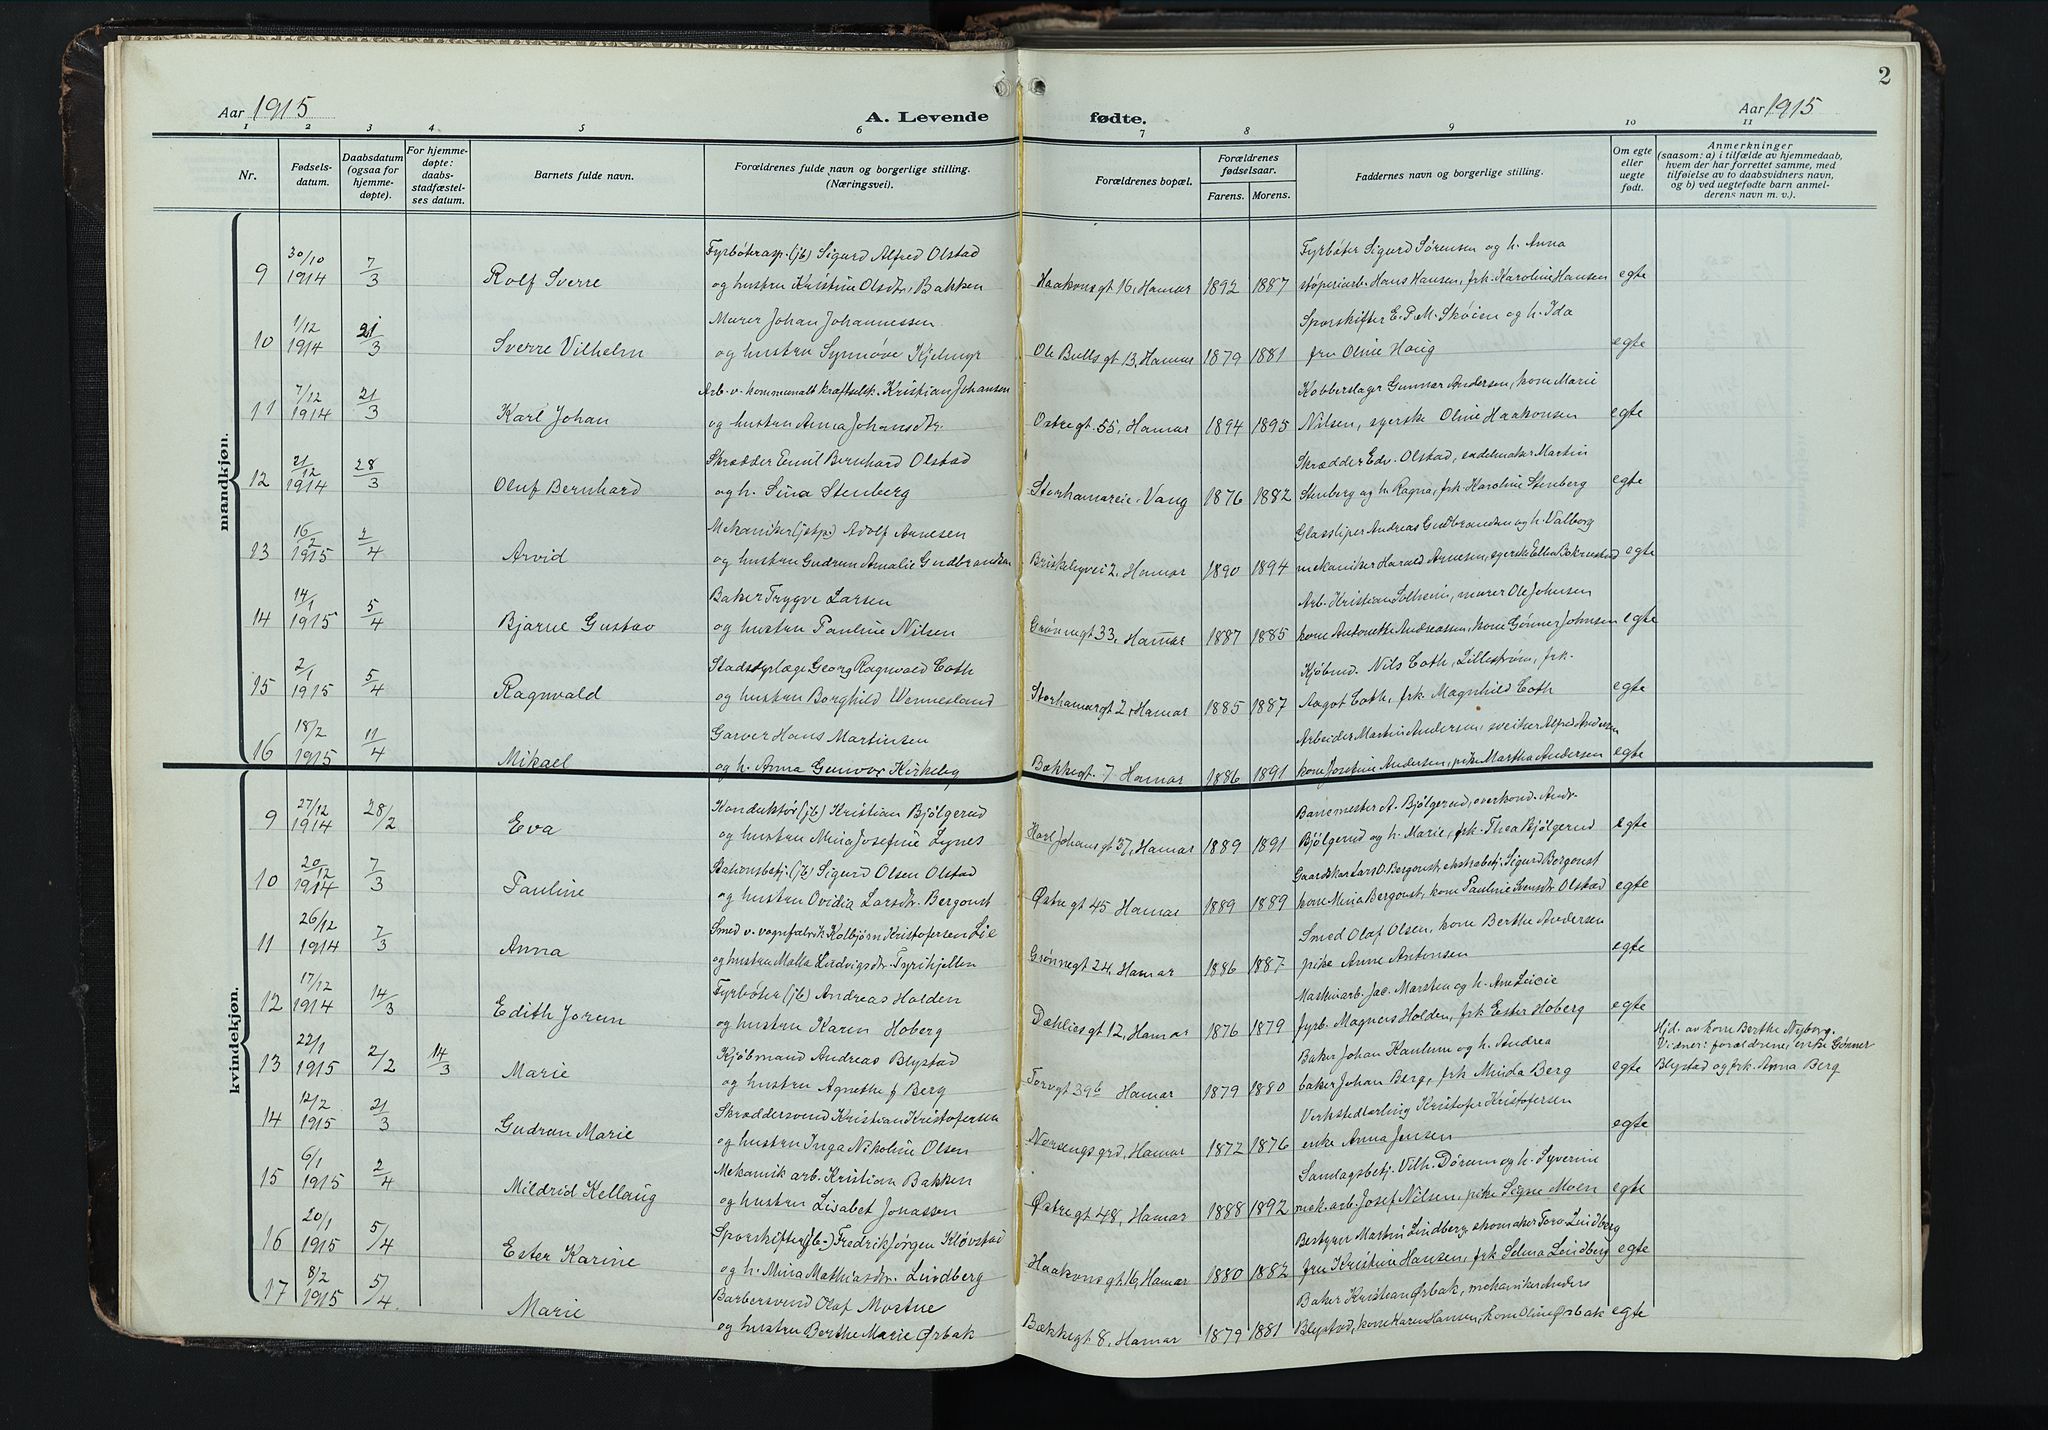 2
Aar 1915 A. Levende fødte. Aar 1915
1 2 3 4 5 6 7 8 9 10 11
Nr. Fødsels-datum. Daabsdatum (ogsaa for hjemme-døpte). For hjemme-døpte: daabs-stadfæstel-ses datum. Barnets fulde navn. Forældrenes fulde navn og borgerlige stilling. (Næringsvei). Forældrenes bopæl. Forældrenes fødselsaar. Farens. Morens. Faddernes navn og borgerlige stilling. Om egte eller uegte født. Anmerkninger (saasom: a) i tilfælde av hjemmedaab, hvem der har forrettet samme, med tilføielse av to daabsvidners navn, og b) ved uegtefødte barn anmel-derens navn m. v.).
mandkjøn.
30/10 Fyrbøterasp. (jb) Sigurd Alfred Olstad Fyrbøter Sigurd Sørensen og h. Anna
9 1914 7/3 Rolf Sverre og hustru Kristine Olsdtr. Bakken Haakonsgt 16, Hamar 1892 1887 støperiarb. Hans Hansen, frk. Karoline Hansen egte
1/12 Murer Johan Johannessen Sporskifter E. P. M. Skøien og h. Ida
10 1914 21/3 Sverre Vilhelm og hustru Synnøve Kjelmyr Ole Bullsgt 13, Hamar 1879 1881 fru Oline Haug egte
7/12 Arb. v. kommunalt kraftselsk. Kristian Johansen Kobberslager Gunnar Andersen, kone Marie
11 1914 21/3 Karl Johan og hustru Anna Johansdtr. Østregt. 55, Hamar 1894 1895 Nilsen, syerske Oline Haakonsen egte
21/12 Skrædder Emil Bernhard Olstad Skrædder Edv. Olstad, sadelmaker Martin
12 1914 28/3 Oluf Bernhard og h. Sina Stenberg Storhamareie, Vang 1876 1882 Stenberg og h. Ragna, frk. Karoline Stenberg egte
16/2 Mekaniker (jstp.) Adolf Arnesen Glassliper Andreas Gudbrandsen og h. Valborg
13 1915 2/4 Arvid og hustru Gudrun Amalie Gudbrandsen Briskebyvei 2, Hamar 1890 1894 mekaniker Harald Arnesen, syerske Ellen egte
14/1 Baker Trygve Larsen Arb. Kristian Solheim, murer Ole Johnsen
14 1915 5/4 Bjarne Gustav og hustru Pauline Nilsen Grønnegt 33, Hamar 1887 1885 kone Antonette Andreassen, kone Gønner Johnsen egte
2/1 Stadsdyrlæge Georg Ragnvald Coth Kjøbmd. Nils Coth, Lillestrøm, frk.
15 1915 5/4 Ragnvald og hustru Borghild Wennesland Storhamargt 2, Hamar 1885 1887 Aagot Coth, frk. Magnhild Coth egte
18/2 Garver Hans Martinsen Arbeider Martin Andersen, sveiser Alfred Andersen
16 1915 11/4 Mikael og h. Anna Gunvor Kirkeby Bækkegt. 7 Hamar 1886 1891 kone Josefine Andersen, pike Martha Andersen egte
kvindekjøn.
27/12 Konduktør (jb) Kristian Bjølgerud Banemester A. Bjølgerud, overkond. Andr.
9 1914 28/2 Eva og hustru Mina Josefine Lynes Karl Johansgt 57, Hamar 1889 1891 Bjølgerud og h. Marie, frk. Thea Bjølgerud egte
20/12 Stationsbetj. (jb) Sigurd Olsen Olstad Gaardskar Lars O. Bergoust, ekstrabetj. Sigurd Bergoust
10 1914 7/3 Pauline og hustru Ovidia Larsdtr. Bergoust Østregt 45 Hamar 1889 1889 kone Mina Bergoust, kone Pauline Svensdtr Olstad egte
26/12 Smed v. vognfabrik Kolbjørn Kristofersen Lie Smed Olaf Olsen, kone Berthe Andersen
11 1914 7/3 Anna og hustru Malla Ludvigsdtr. Tyrihjellen Grønnegt 24, Hamar 1886 1887 pike Anne Antonsen egte
17/12 Fyrbøter (jb) Andreas Holden Maskinarb. Jac. Marsten og h. Ane
12 1914 14/3 Edith Jorem og hustru Karen Hoberg Dæhliesgt 12, Hamar 1876 1879 fyrb. Magnus Holden, frk Ester Hoberg egte
22/1 Kjøbmand Andreas Blystad Baker Johan Kaulum og h. Andrea Hjd. av kone Berthe Nyborg.
13 1915 2/2 14/3 Marie og hustru Agnethe f Berg Torvgt 39b Hamar 1879 1880 baker Johan Berg, frk Minda Berg egte Vidner: forældrene, enke Gønner
Blystad og frk. Anna Berg
12/2 Skræddersvend Kristian Kristofersen Verkstedlærling Kristofer Kristofersen
14 1915 21/3 Gudrun Marie og hustru Inga Nikoline Olsen Norsengsgrd, Hamar 1872 1876 enke Anna Jensen egte
6/1 Mekanisk arb. Kristian Bakken Sandagsbetj. Vilh. Dørum og h. Syverine
15 1915 2/4 Mildrid Kellaug og hustru Lisabet Jonassen Østregt 48, Hamar 1888 1892 mek. arb. Josef Nilsen, pike Signe Moen egte
20/1 Sporskifter (jb.) Fredrik Jørgen Kløvstad Bestyrer Martin Lindberg, skomaker Tora Lindberg
16 1915 5/4 Ester Karine og h. Mina Mathiasdtr. Lindberg Haakonsgt 16, Hamar 1880 1882 fru Kristine Hansen, frk Selma Lindberg egte
8/2 Barbersvend Olaf Mostue Baker Kristian Ørbak, mekaniker Anders
17 1915 5/4 Marie og hustru Berthe Marie Ørbak Bækkegt 8, Hamar 1879 1881 Blystad, kone Karen Hansen, kone Oline Ørbak egte